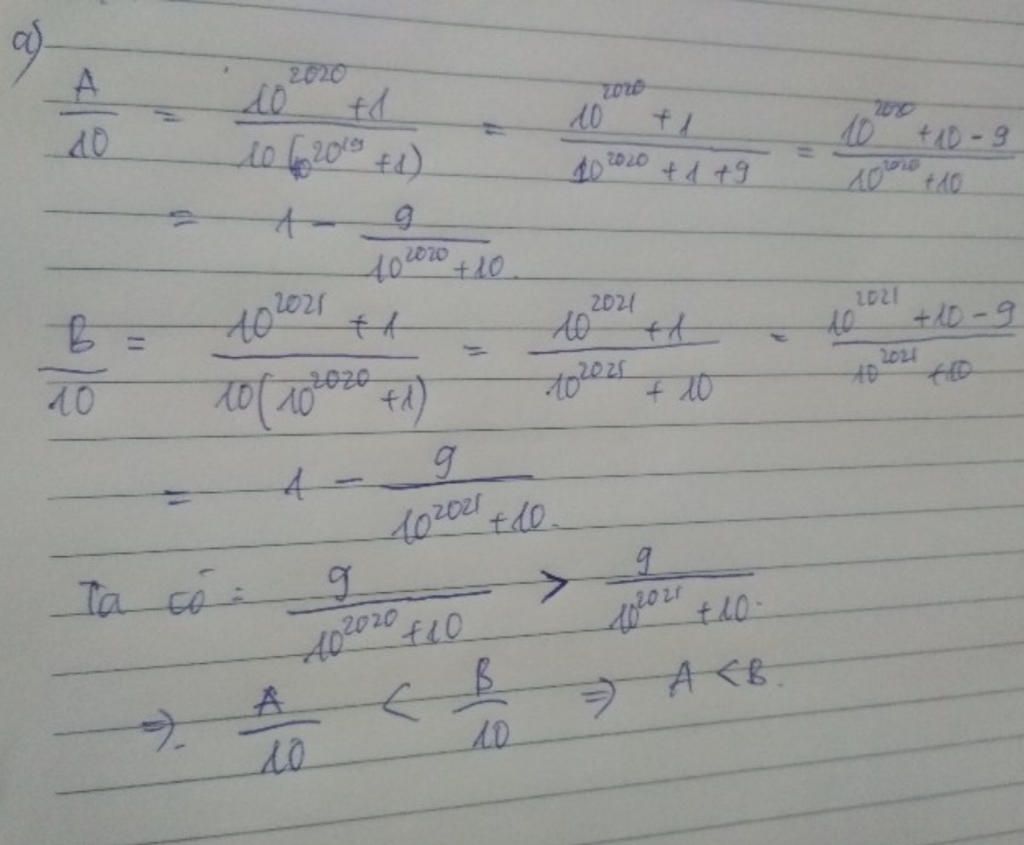 a)
A/10 = (10^2020 + 1)/(10(10^2019 + 1)) = (10^2020 + 1)/(10^2020 + 1 + 9) = (10^2020 + 10 - 9)/(10^2020 + 10)
= 1 - 9/(10^2020 + 10).
B/10 = (10^2021 + 1)/(10(10^2020 + 1)) = (10^2021 + 1)/(10^2021 + 10) = (10^2021 + 10 - 9)/(10^2021 + 10)
= 1 - 9/(10^2021 + 10).
Ta có: 9/(10^2020 + 10) > 9/(10^2021 + 10).
⇒. A/10 < B/10 ⇒ A < B.